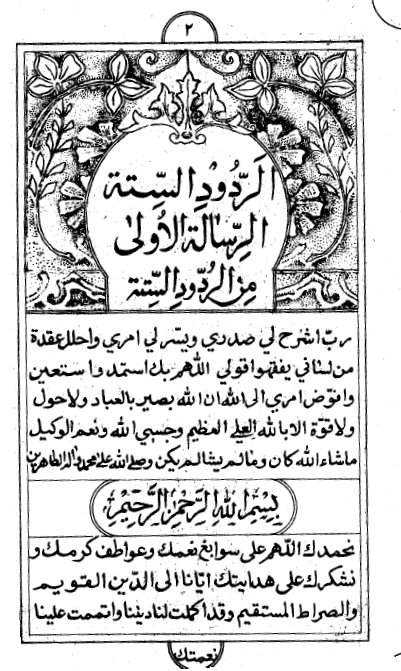 ٢
الَردُودِ السِّتة
الرِّسالة الأُولىٰ
مِنَ الرُدُودِ السِّتة
ربّ اشرح لي صدري ويسّر لي امري واحلل عقدة
من لساني يفقهوا قولي اللّٰهم بك استمد واستعين
وافوّض امري الى اللّٰه ان اللّٰه بصير بالعباد ولا حول
ولا قوّة الا باللّٰه العلي العظيم وحسبي اللّٰه ونعم الوكيل
ما شاء اللّٰه كان وما لم يشا لم يكن وصلى اللّٰه على محمد واله الطاهرين
بِسْمِ اللّٰهِ الرَّحْمٰنِ الرَّحِيْمِ
نحمدك اللّٰهم على سوابغ نعمك وعواطف كرمك و
نشكرك على هدايتك ايّانا الى الدّين القويم
والصراط المستقيم وقد اكملت لنا ديننا واتممت علينا
نعمتك